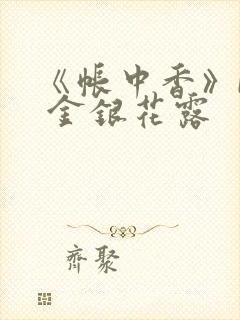 《帳中香》
金銀花露
齊聚